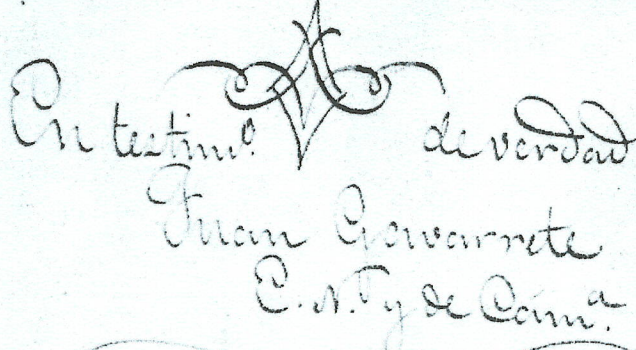 En testimo. de verdad
Juan Gavarrete
E. N. y de Cáma.